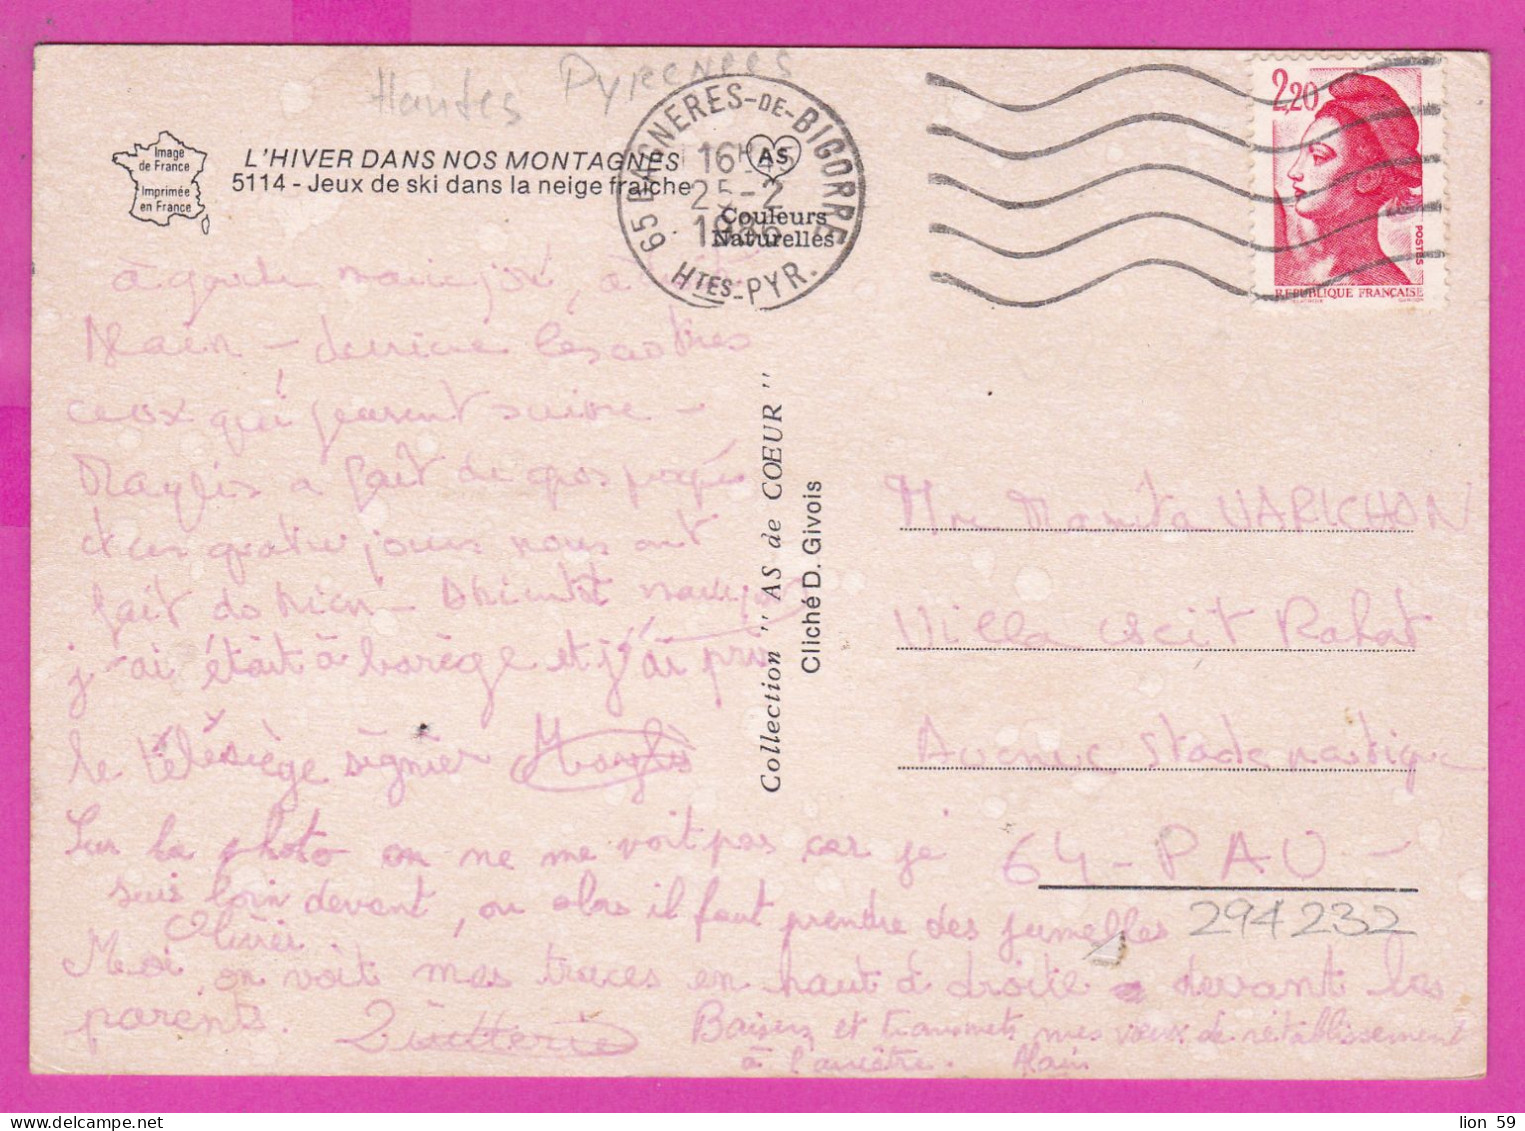 Hautes Pyrenees
Image
de France
Imprimée
en France
L'HIVER DANS NOS MONTAGNES
5114 - Jeux de ski dans la neige fraiche
AS
Couleurs
Naturelles
65 BAGNERES-DE-BIGORRE
16H45
25-2
1986
HTES-PYR.
2,20
POSTES
REPUBLIQUE FRANÇAISE
à gauche marie josé, a
Main - derriere les autres
ceux qui peuvent suivre -
Maylis a fait de gros progrès
et ces quatre jours nous ont
fait du bien - Bientôt
j'ai était à barège et j'ai pris
le télésiège signier Maylis
Sur la photo on ne me voit pas car je
suis loin devant, ou alors il faut prendre des jumelles
Olivier
Moi on voit mes traces en haut à droite devant les
parents.
Baisers et transmets mes vœux de rétablissement
à l'ancêtre. Alain
Collection "AS de COEUR"
Cliché D. Givois
Mme Manita VARICHON
Villa Rahat
Avenue Stade nautique
64 - PAU -
294232
lion 59